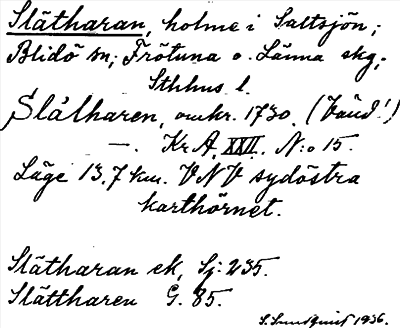 Slätharan, holme i Saltsjön;
Blidö sn; Frötuna o. Länna skg;
Sthlms l.
Slätharen, omkr. 1730. (Vänd!)
—. KrA, XXII. N:o 15.
Läge 13,7 km. VNV sydöstra
karthörnet.
Slätharan ek, Sj: 235.
Slättharen G. 85.
S. Sundquist 1936.